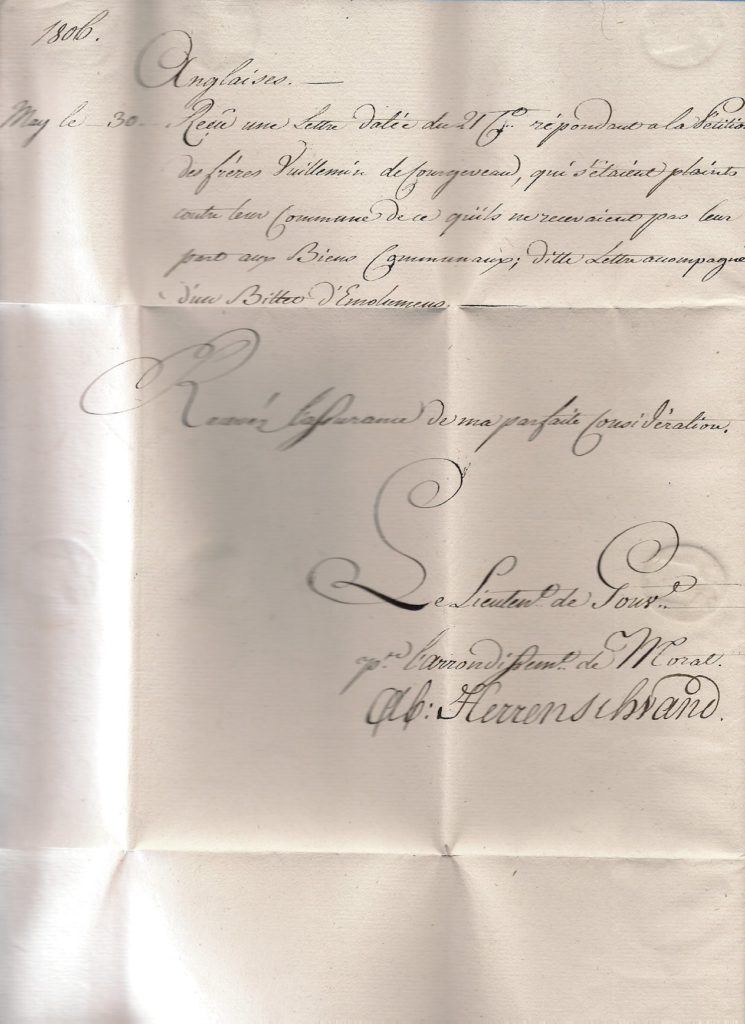 1806.
Anglaises. —
May le 30. Reçu une Lettre datée du 21 Ct. répondant a la Pétition
des frères Vuillemin de Courgevaud, qui s'étaient plaints
contre leur Commune de ce qu'ils ne recevaient pas leur
part aux Biens Communaux; ditte Lettre accompagne
d'un Billet d'Emolumens.
Recevéz l'assurance de ma parfaite Considération.
Le Lieutent. de Gouvr.
pr. l'arrondissemt. de Morat.
Ab: Herrenschwand.